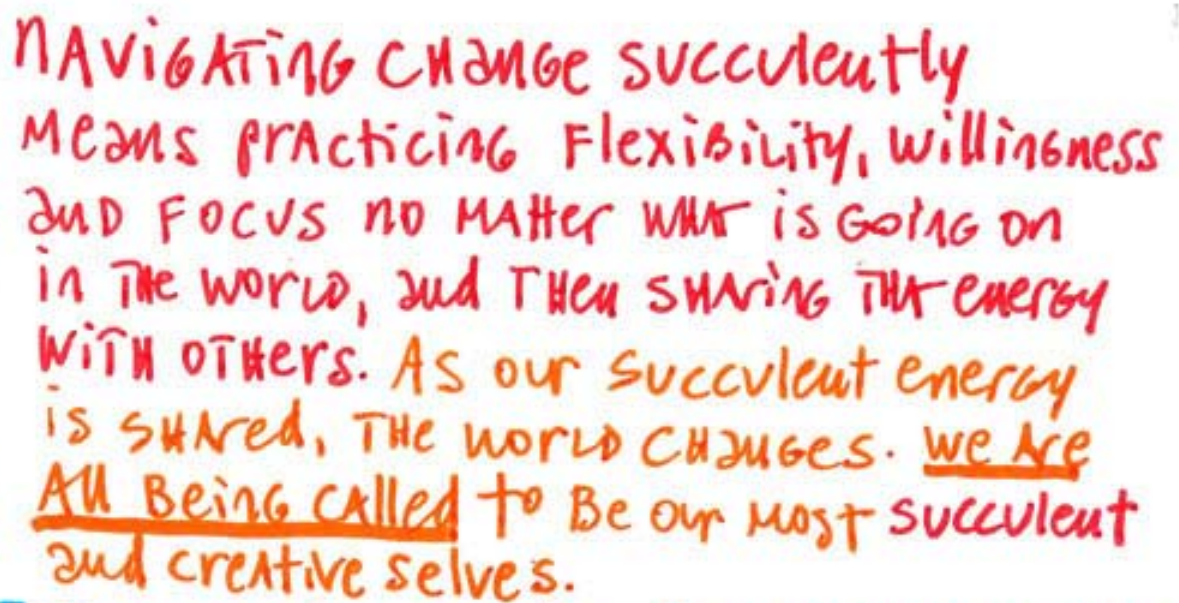 NAViGATiNG CHANGe succulently
Means prActicinG Flexibility, willinGness
and Focus no MAtter WHAT is GoinG on
in THe worlD, and THen SHArinG THAt enerGy
WiTH oTHers. As our succulent enerGy
is SHAred, THe worlD CHanGes. we Are
All BeinG CAlled to Be our most succulent
and creAtive selves.